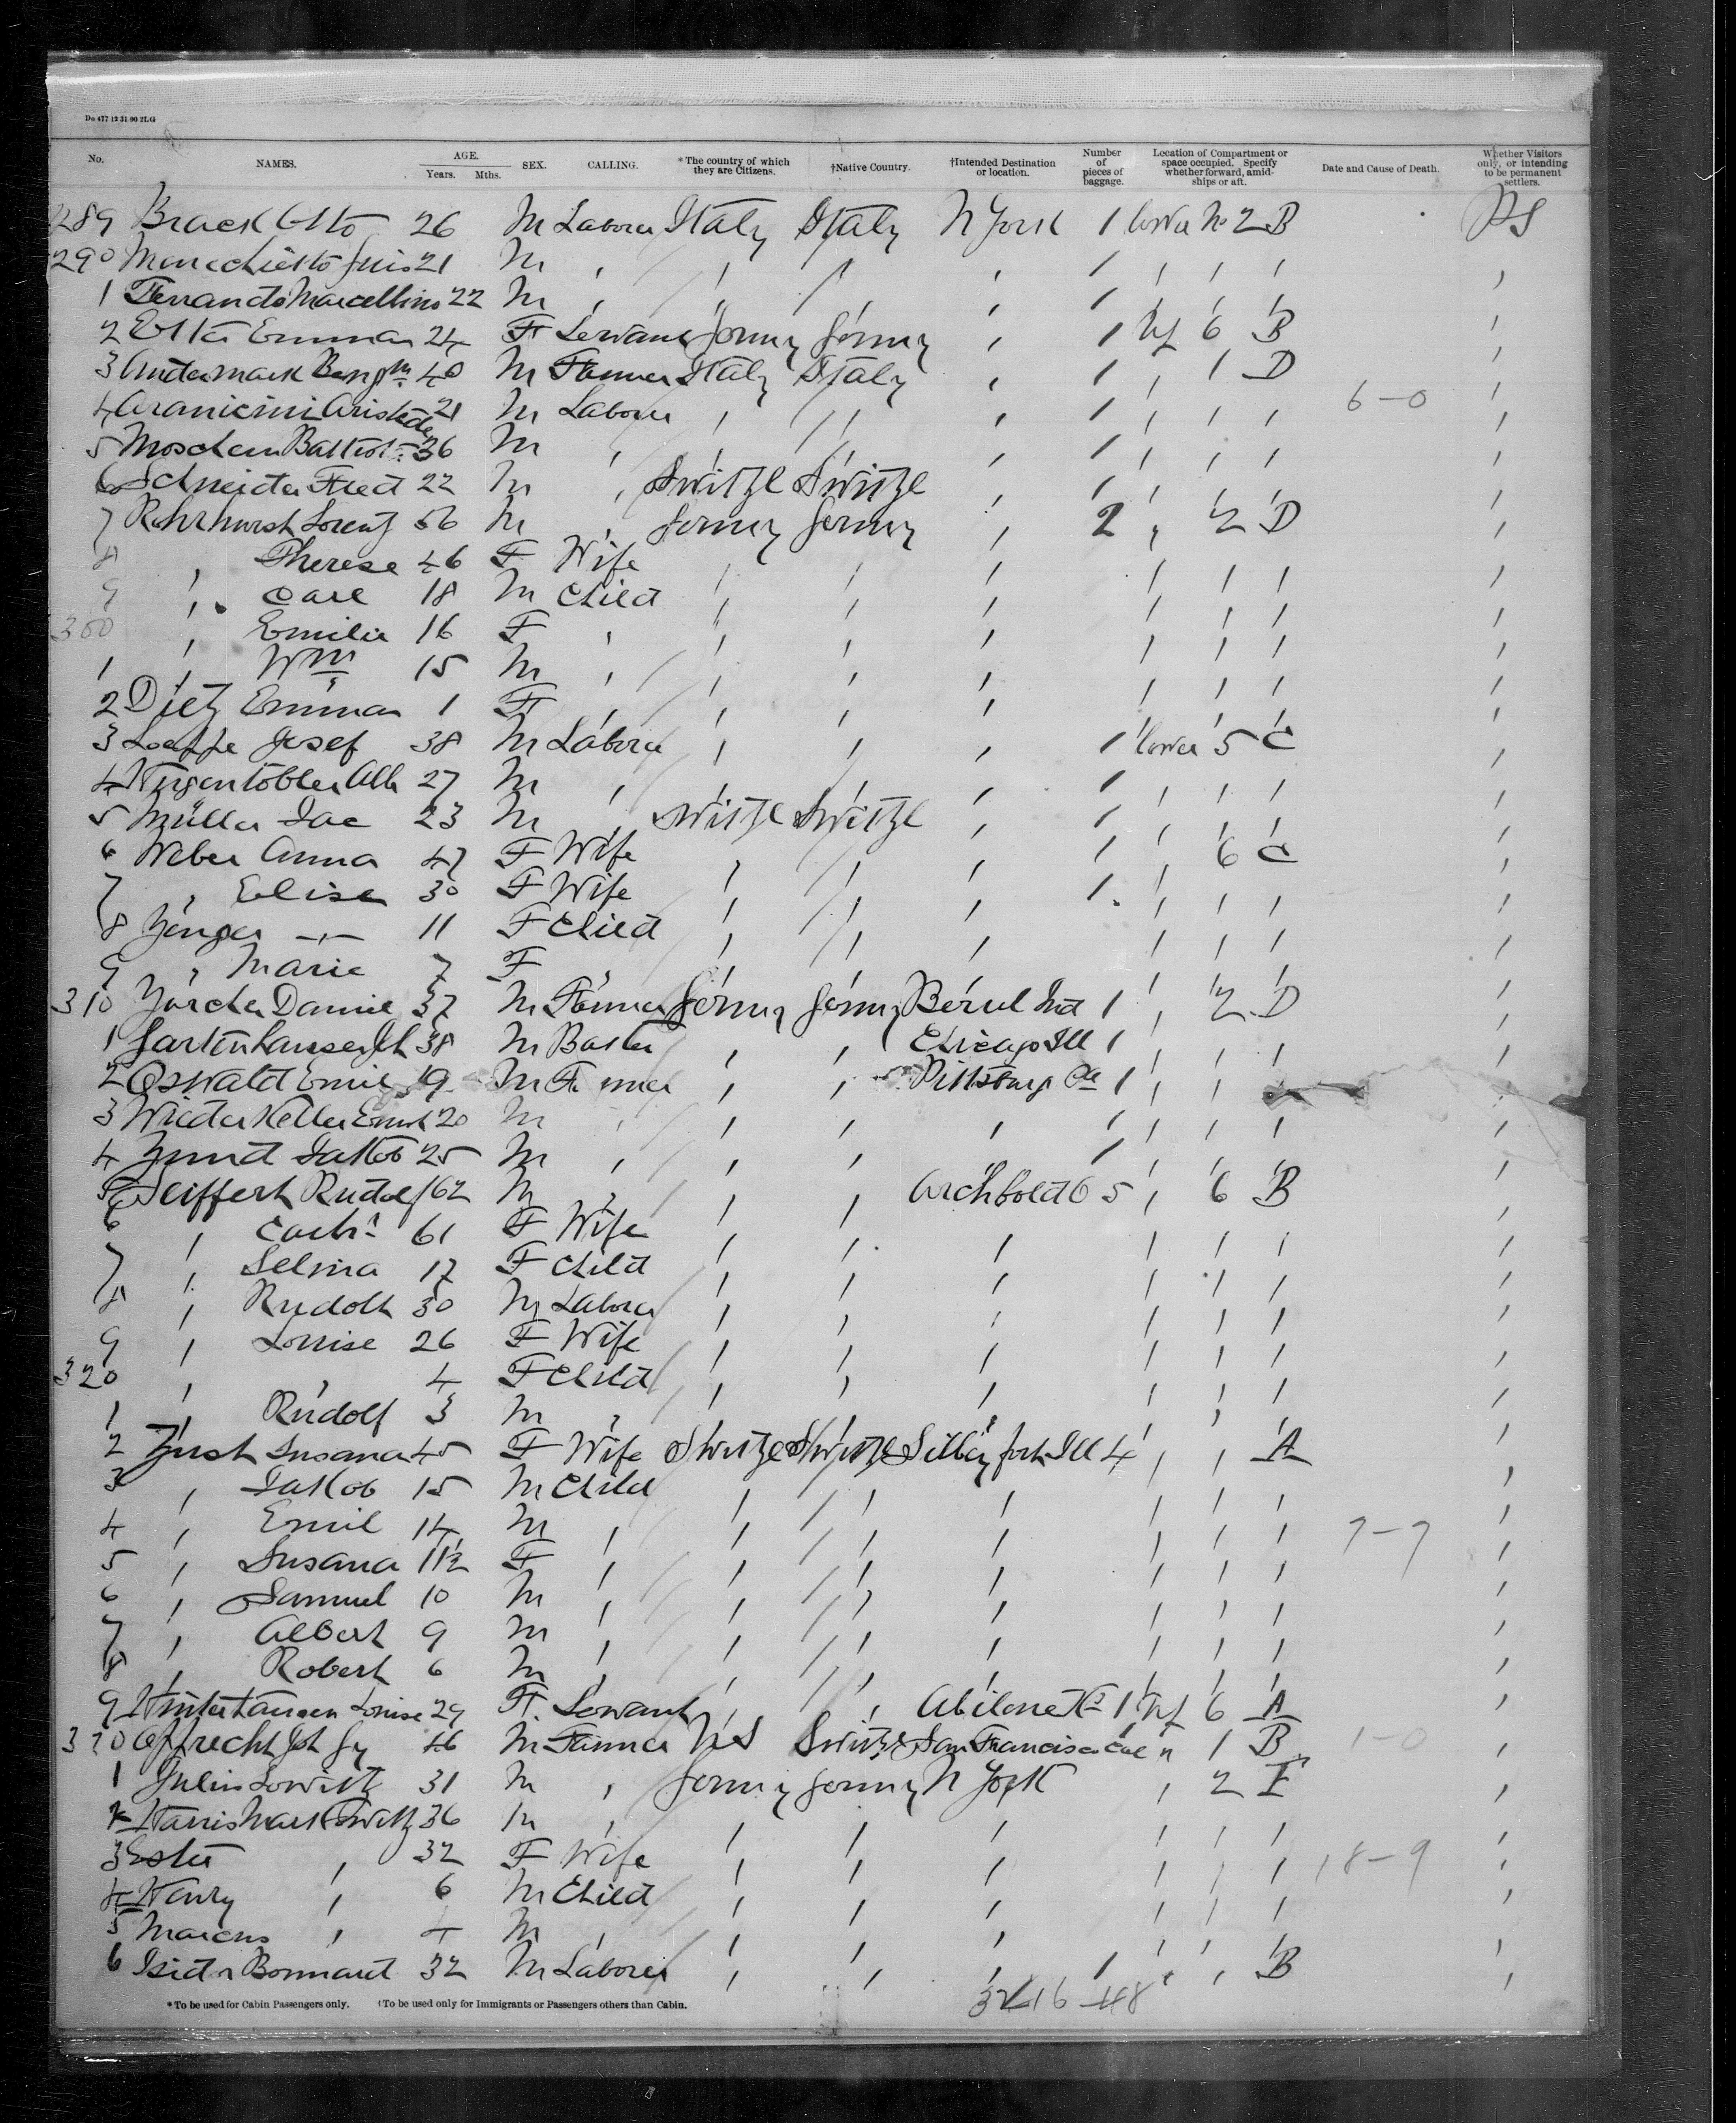 Do 477 12 31 90 2LG
No. NAMES. AGE. Years. Mths. SEX. CALLING. *The country of which they are Citizens. †Native Country. †Intended Destination or location. Number of pieces of baggage. Location of Compartment or space occupied. Specify whether forward, amidships or aft. Date and Cause of Death. Whether Visitors only, or intending to be permanent settlers.
289 Brack Otto 26 M Laborer Italy Italy N York 1 lower No 2 B PS
290 21 M ' ' ' ' 1 ' ' ' '
1 Ferrando Marcellino 22 M ' ' ' ' 1 ' ' ' '
2 Emma 24 F Servant Germy Germy ' 1 6 B '
3 40 M Farmer Italy Italy ' 1 ' 1 D '
4 21 M Laborer ' ' ' 1 ' ' ' 6-0 '
5 36 M ' ' ' ' 1 ' ' ' '
6 Schneider Fred 22 M ' Switzl Switzl ' 1 ' ' ' '
7 Rohrhurst Lorenz 56 M ' Germy Germy ' 2 ' 2 D '
8 ' Therese 46 F Wife ' ' ' ' ' ' '
9 ' Carl 18 M Child ' ' ' ' ' ' '
300 ' Emilie 16 F ' ' ' ' ' ' ' '
1 ' Wm 15 M ' ' ' ' ' ' ' '
2 Dietz Emma 1 F ' ' ' ' ' ' ' '
3 Josef 38 M Laborer ' ' ' 1 lower 5 C '
4 27 M ' ' ' ' 1 ' ' ' '
5 Müller Jac 23 M ' Switzl Switzl ' 1 ' ' ' '
6 Weber Anna 47 F Wife ' ' ' 1 ' 6 C '
7 ' Elise 30 F Wife ' ' ' 1 ' ' ' '
8 11 F Child ' ' ' ' ' ' '
9 ' Marie 7 F ' ' ' ' ' ' ' '
310 37 M Farmer Germy Germy Ind 1 ' 2 D '
1 38 M ' ' Chicago Ill 1 ' ' ' '
2 Oswald Emil 19 M Farmer ' ' Pittsburg Pa 1 ' ' '
3 20 M ' ' ' ' 1 ' ' ' '
4 Jakob 25 M ' ' ' ' 1 ' ' ' '
5 Seiffert Rudolf 62 M ' ' ' Archbold O 5 ' 6 B '
6 ' 61 F Wife ' ' ' ' ' ' '
7 ' Selma 17 F Child ' ' ' ' ' ' '
8 ' Rudolf 30 M Laborer ' ' ' ' ' ' '
9 ' Louise 26 F Wife ' ' ' ' ' ' '
320 ' ' 4 F Child ' ' ' ' ' ' '
1 ' Rudolf 3 M ' ' ' ' ' ' ' '
2 Zust Susana 45 F Wife Switzl Switzl Ill 4 ' ' A '
3 ' Jakob 15 M Child ' ' ' ' ' ' '
4 ' Emil 14 M ' ' ' ' ' ' ' 7-7 '
5 ' Susana 11½ F ' ' ' ' ' ' ' '
6 ' Samuel 10 M ' ' ' ' ' ' ' '
7 ' Albert 9 M ' ' ' ' ' ' ' '
8 ' Robert 6 M ' ' ' ' ' ' ' '
9 Louise 29 F Servant ' ' Abilene 1 6 A '
330 46 M Farmer US Switzl San Francisco Cal 1 B 1-0 '
1 Julius Lowitz 31 M ' Germy Germy N York ' 2 E '
2 Harris Markowitz 36 M ' ' ' ' ' ' ' '
3 Ester ' 32 F Wife ' ' ' ' ' ' 18-9 '
4 Harry ' 6 M Child ' ' ' ' ' ' '
5 Marcus ' 4 M ' ' ' ' ' ' ' '
6 Isidor Bonnard 32 M Laborer ' ' ' 1 ' ' B '
*To be used for Cabin Passengers only. †To be used only for Immigrants or Passengers others than Cabin.
32 16 48